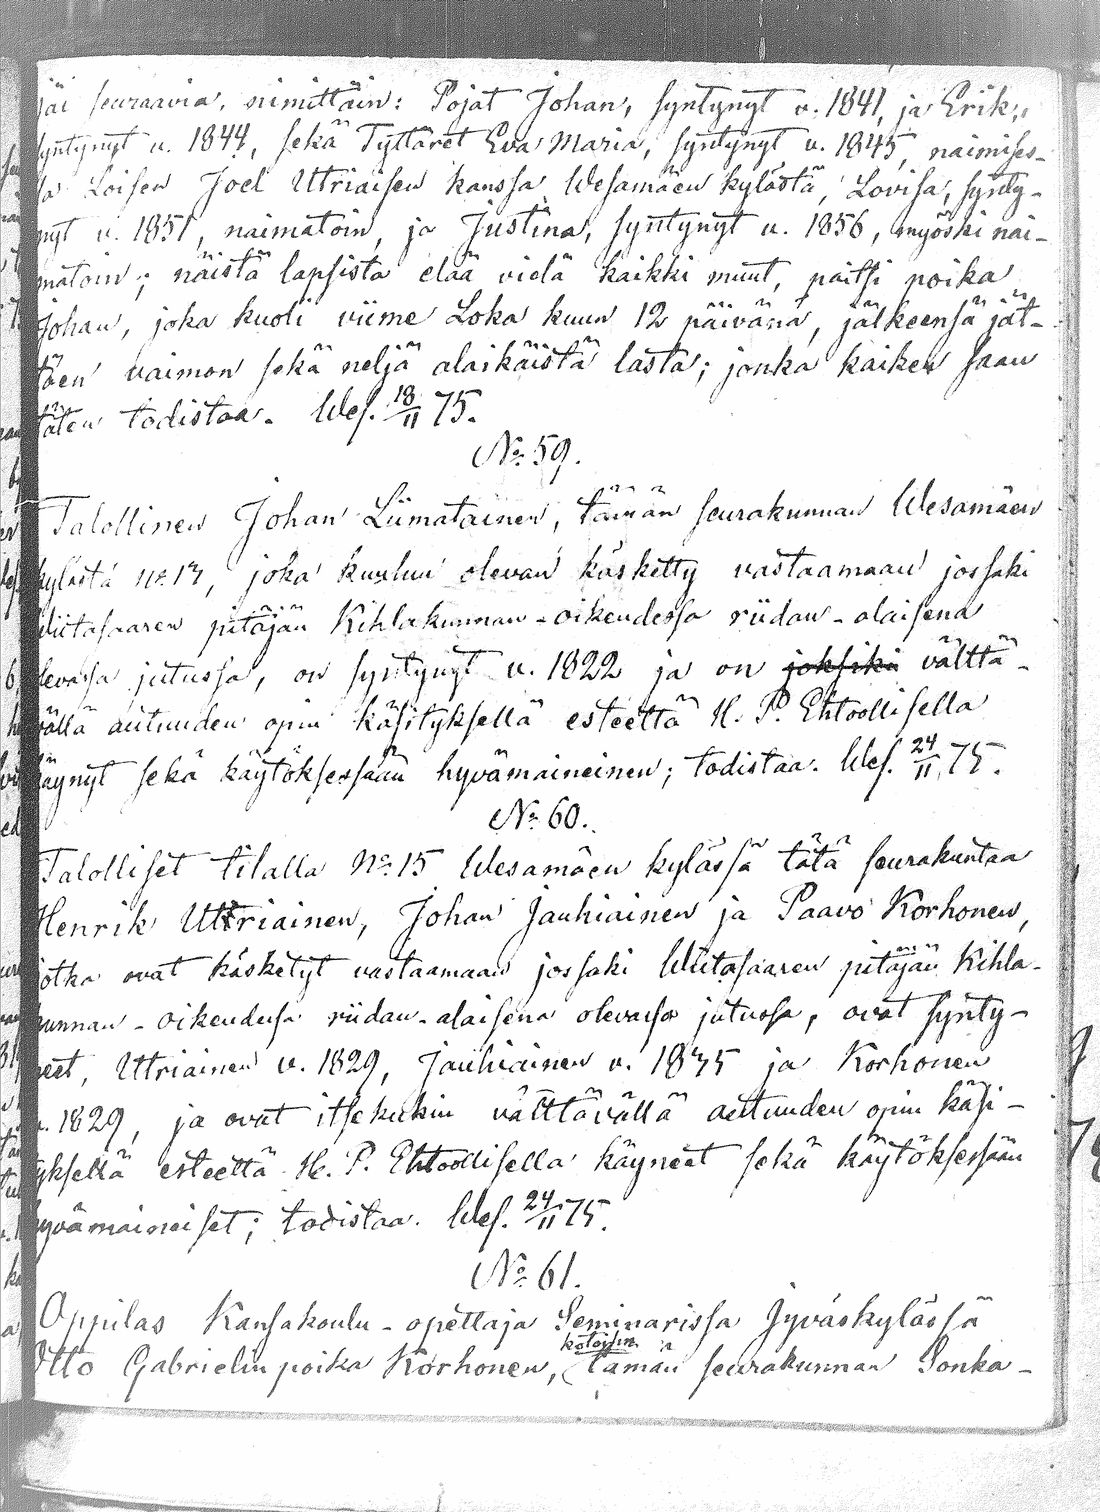 jäi seuraavia, nimittäin: Pojat Johan, syntynyt v. 1841, ja Erik,
syntynyt v. 1844, sekä Tyttäret Eva Maria, syntynyt v. 1845, naimises-
sa Loisen Joel Utriaisen kanssa Wesamäen kylästä, Lovisa, synty-
nyt v. 1851, naimatoin, ja Justina, syntynyt v. 1856, myöski nai-
matoin; näistä lapsista elää vielä kaikki muut, paitsi poika
Johan, joka kuoli viime Loka kuun 12 päivänä, jälkeensä jät-
täen vaimon sekä neljä alaikäistä lasta; jonka kaiken saan
täten todistaa. Wes. 18/11 75.
No. 59.
Talollinen Johan Liimatainen, tämän seurakunnan Wesamäen
kylästä No. 17, joka kuuluu olevan käsketty vastaamaan jossaki
Wiitasaaren pitäjän Kihlakunnan-oikeudessa riidan-alaisena
olevassa jutussa, on syntynyt v. 1822 ja on joksiki välttä-
vällä autuuden opin käsityksellä esteettä H. P. Ehtoollisella
käynyt sekä käytöksessään hyvämaineinen; todistaa. Wes. 24/11 75.
No. 60.
Talolliset tilalla No. 15 Wesamäen kylässä tätä seurakuntaa
Henrik Uttriainen, Johan Jauhiainen ja Paavo Korhonen,
jotka ovat käsketyt vastaamaan jossaki Wiitasaaren pitäjän Kihla-
kunnan-oikeudessa riidan-alaisena olevassa jutussa, ovat synty-
neet, Uttriainen v. 1829, Jauhiainen v. 1835 ja Korhonen
v. 1829, ja ovat itsekukin välttävällä autuuden opin käsi-
tyksellä esteettä H. P. Ehtoollisella käyneet sekä käytöksessään
hyvämaineiset; todistaa. Wes. 24/11 75.
No. 61.
Oppilas Kansakoulu-opettaja Seminarissa Jyväskylässä
kotoisin
Otto Gabrielin poika Korhonen, (tämän seurakunnan Sonka-